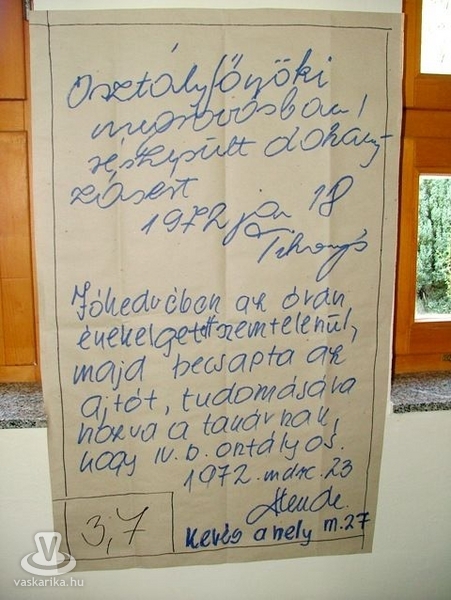 Osztályfőnöki
megrovásban
részesült dohány-
zásért
1972 jan 18
Jókedvéből az órán
énekelgett szemtelenül,
majd becsapta az
ajtót, tudomására
hozva a tanárnak,
hogy IV. b. osztályos.
1972. márc. 23
3,7
Kevés a hely m. 27
vaskarika.hu